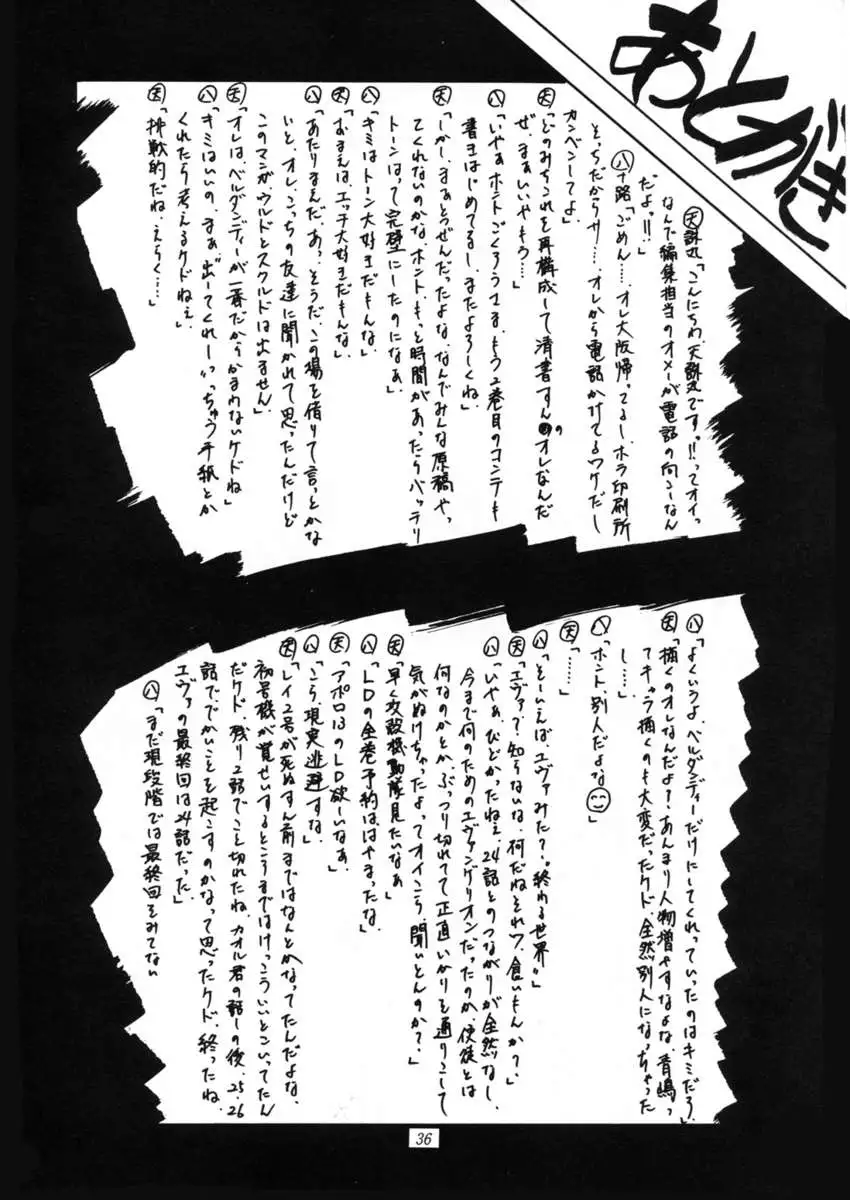 あとがき
㊝誅丞「こんにちわ、天誅丞です!!ってオイっ
なんで編集担当のオメーが電話の向こーなん
だよッ!!」
㊇十路「ごめん……、オレ大阪帰ってるし、ホラ印刷所
そっちだからサ……、オレから電話かけてるワケだし
カンベンしてよ」
㊝「どのみちこれを再構成して清書すんのオレなんだ
ぜ、まぁいいやもう…」
㊇「いやぁホントごくろうさま、もう2巻目のコンテも
書きはじめてるし、またよろしくね」
㊝「しかし、まぁとうぜんだったよな、なんでみんな原稿やっ
てくれないのかな、ホント、もっと時間があったらバッチリ
トーンはって完璧にしたのになぁ」
㊇「キミはトーン大好きだもんな」
㊝「おまえは、エッチ大好きだもんな」
㊇「あたりまえだ、あっ、そうだ、この場を借りて言っとかな
いと、オレ、こっちの友達に聞かれて思ったんだけど
このマンガ、ウルドとスクルドは出ません」
㊝「オレは、ベルダンディーが一番だからかまわないケドね」
㊇「キミはいいの、まぁ出してくれーいっちゅう手紙とか
くれたら考えるケドねぇ」
㊝「挑戦的だね、えらく…」
㊇「よくいうよ、ベルダンディーだけにしてくれっていったのはキミだろ」
㊝「描くのオレなんだよ?、あんまり人物増やすなよな、青嶋っ
てキャラ描くのも大変だったケド、全然別人になっちゃった
し……」
㊇「ホント、別人だよな」
㊝「……」
㊇「そーいえば、エヴァみた?。終わる世界〟」
㊝「エヴァ?、知らないな、何だねそれワ、食いもんか?」
㊇「いやぁ、ひどかったねぇ、24話とのつながりが全然なし、
今まで何のためのエヴァンゲリオンだったのか、使徒とは
何なのかとか、ぶっつり切れてて正直いかりを通りこして
気がぬけちゃったよってオイこら、聞いとんのか?」
㊝「早く攻殻機動隊見たいなぁ」
㊇「LDの全巻予約ははやまったな」
㊝「アポロ13のLD欲しいなぁ」
㊇「こら、現実逃避すな」
㊝「レイ2号が死ぬすん前まではなんとかなってたんだよな、
初号機が覚せいするところまではけっこういいとこいってたん
だケド、残り2話でこと切れたね、カオル君の話しの後、25、26
話ででかいことを起こすのかなって思ったケド、終ったね、
エヴァの最終回は24話だった」
㊇「まだ現段階では最終回をみてない
36